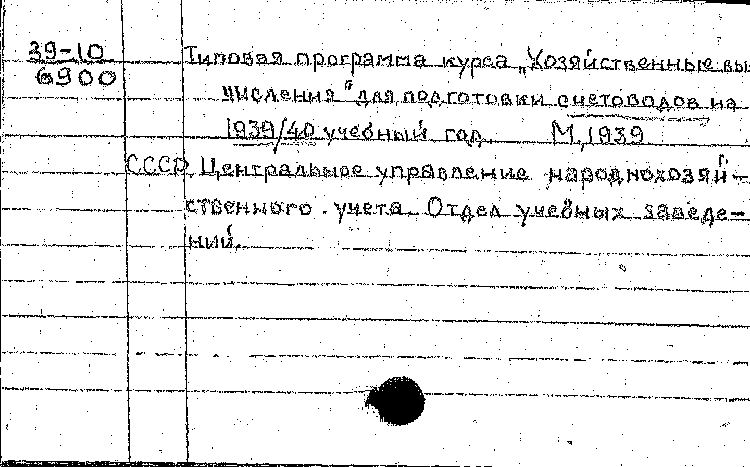 39-10
6900
Типовая программа курса „Хозяйственные вы
числения" для подготовки счетоводов на
1939/40 учебный год. М, 1939
СССР. Центральное управление народнохозяй-
ственного учета. Отдел учебных заведе-
ний.